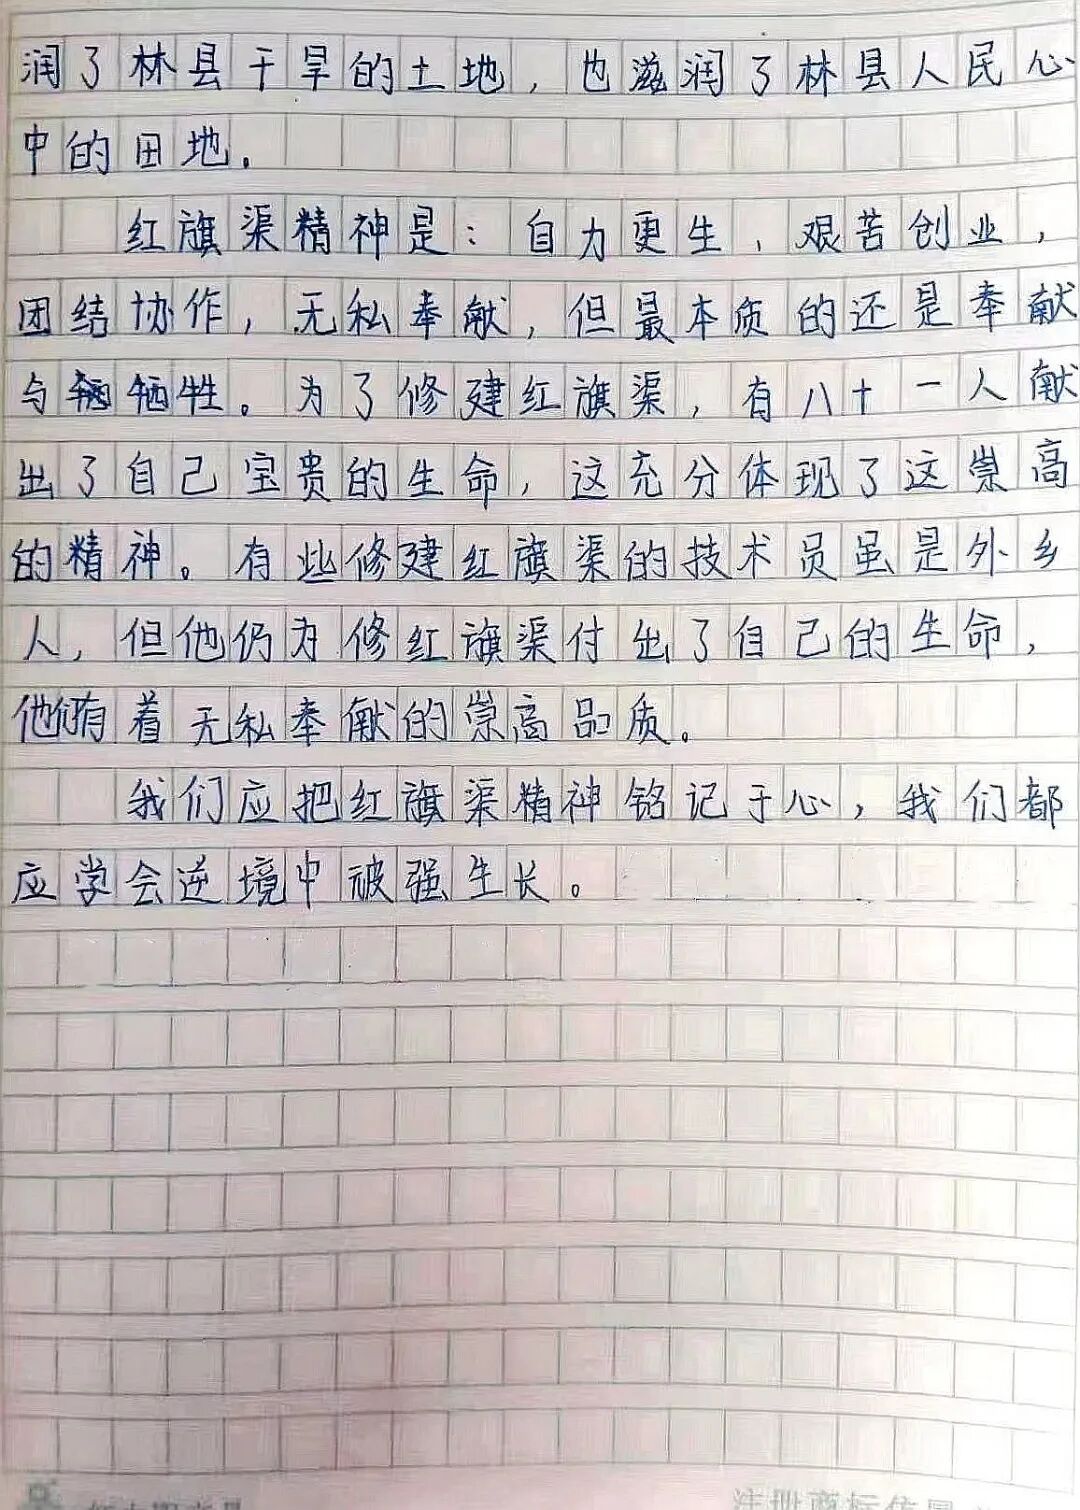 润了林县干旱的土地，也滋润了林县人民心
中的田地。
红旗渠精神是：自力更生，艰苦创业，
团结协作，无私奉献，但最本质的还是奉献
与牺牲。为了修建红旗渠，有八十一人献
出了自己宝贵的生命，这充分体现了这崇高
的精神。有些修建红旗渠的技术员虽是外乡
人，但他仍为修红旗渠付出了自己的生命，
他们有着无私奉献的崇高品质。
我们应把红旗渠精神铭记于心，我们都
应学会逆境中被强生长。
注册商标